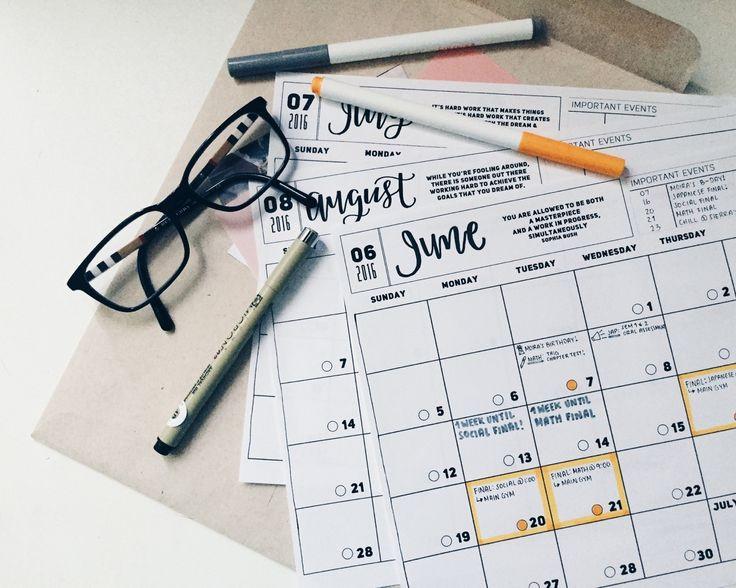 07
2016
July
IT'S HARD WORK THAT MAKES THINGS
HARD WORK THAT CREATES
THE DREAM &
IMPORTANT EVENTS
SUNDAY
MONDAY
08
2016
august
WHILE YOU'RE FOOLING AROUND,
THERE IS SOMEONE OUT THERE
WORKING HARD TO ACHIEVE THE
GOALS THAT YOU DREAM OF.
IMPORTANT EVENTS
7
14
21
28
06
2016
June
YOU ARE ALLOWED TO BE BOTH
A MASTERPIECE
AND A WORK IN PROGRESS,
SIMULTANEOUSLY
SOPHIA BUSH
IMPORTANT EVENTS
07 MOIRA'S B-DAY!
16 JAPANESE FINAL!
20 SOCIAL FINAL
21 MATH FINAL
23 CHILL @ SIERRA
SUNDAY MONDAY TUESDAY WEDNESDAY THURSDAY
1 2
MOIRA'S BIRTHDAY!
MATH: TRIG
CHAPTER TEST!
JAP: SEM 1 & 2
ORAL ASSESSMENT
5 6 7 8
1 WEEK UNTIL
SOCIAL FINAL!
1 WEEK UNTIL
MATH FINAL
FINAL: JAPANESE
MAIN GYM
12 13 14 15
FINAL: SOCIAL @
MAIN GYM
FINAL: MATH @ 9:00
MAIN GYM
19 20 21 22
JULY
27 28 30